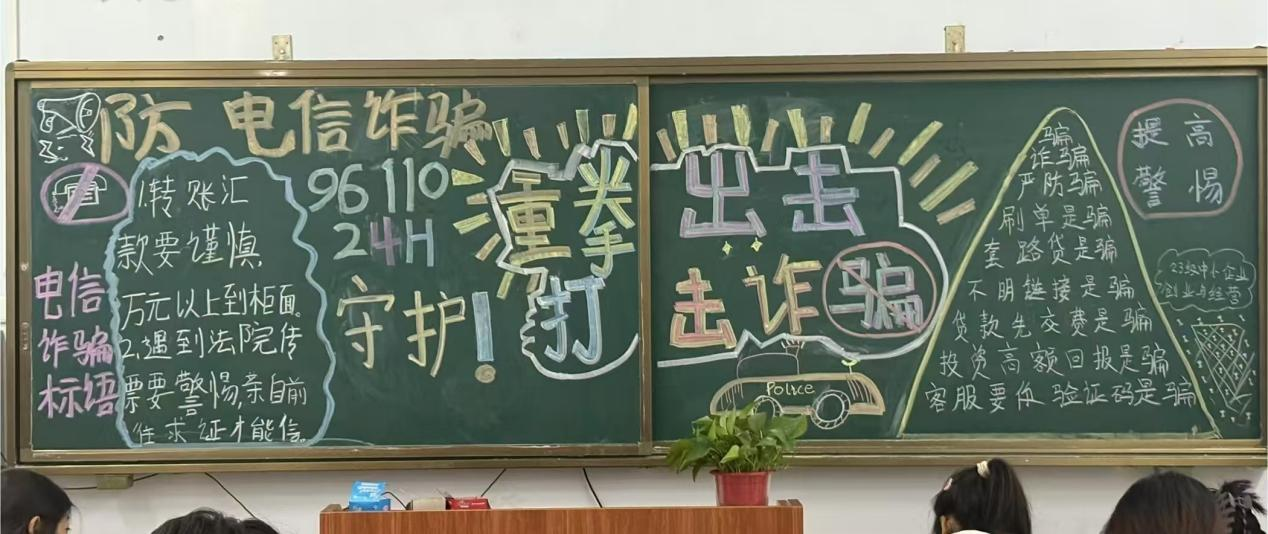 防电信诈骗
电信
诈骗
标语
1.转账汇
款要谨慎
万元以上到柜面。
2.遇到法院传
票要警惕,亲自前
往求证才能信。
96110
24H
守护!
重拳出击
打击诈骗
Police
骗
诈骗
严防骗
刷单是骗
套路贷是骗
不明链接是骗
贷款先交费是骗
投资高额回报是骗
客服要你验证码是骗
提高
警惕
23级中小企业
创业与经营